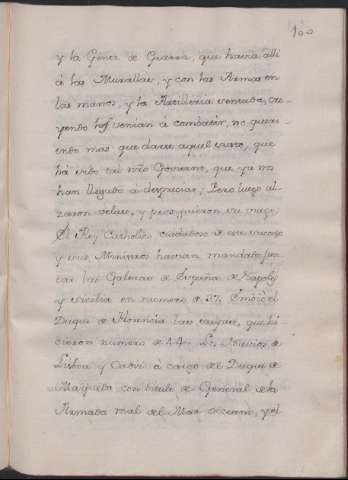 100
y la Gente de Guerra, que havia alli
á las Murallas, y con las Armas en
las manos, y la Artilleria ventada, cre-
yendo q.e venian á combatir, no queri-
endo mas que darse aquel gusto, que
há sido tal nro Govierno, que ya nos
han llegado á despreciar; Pero luego al-
zaron velas, y prosiguieron su viage;
El Rey Catholico cuidadoso de este suceso
y sus Ministros havian mandato jun-
tar las Galeras de España de Napoles
y Sicilia en numero de 27. Embió el
Duque de Florencia las suyas, que hi-
cieron numero de 44. Los Navios de
Lisboa y Cadiz á cargo del Duque de
Maqueda con titulo de General de la
Armada real del Mar Occeano, y el